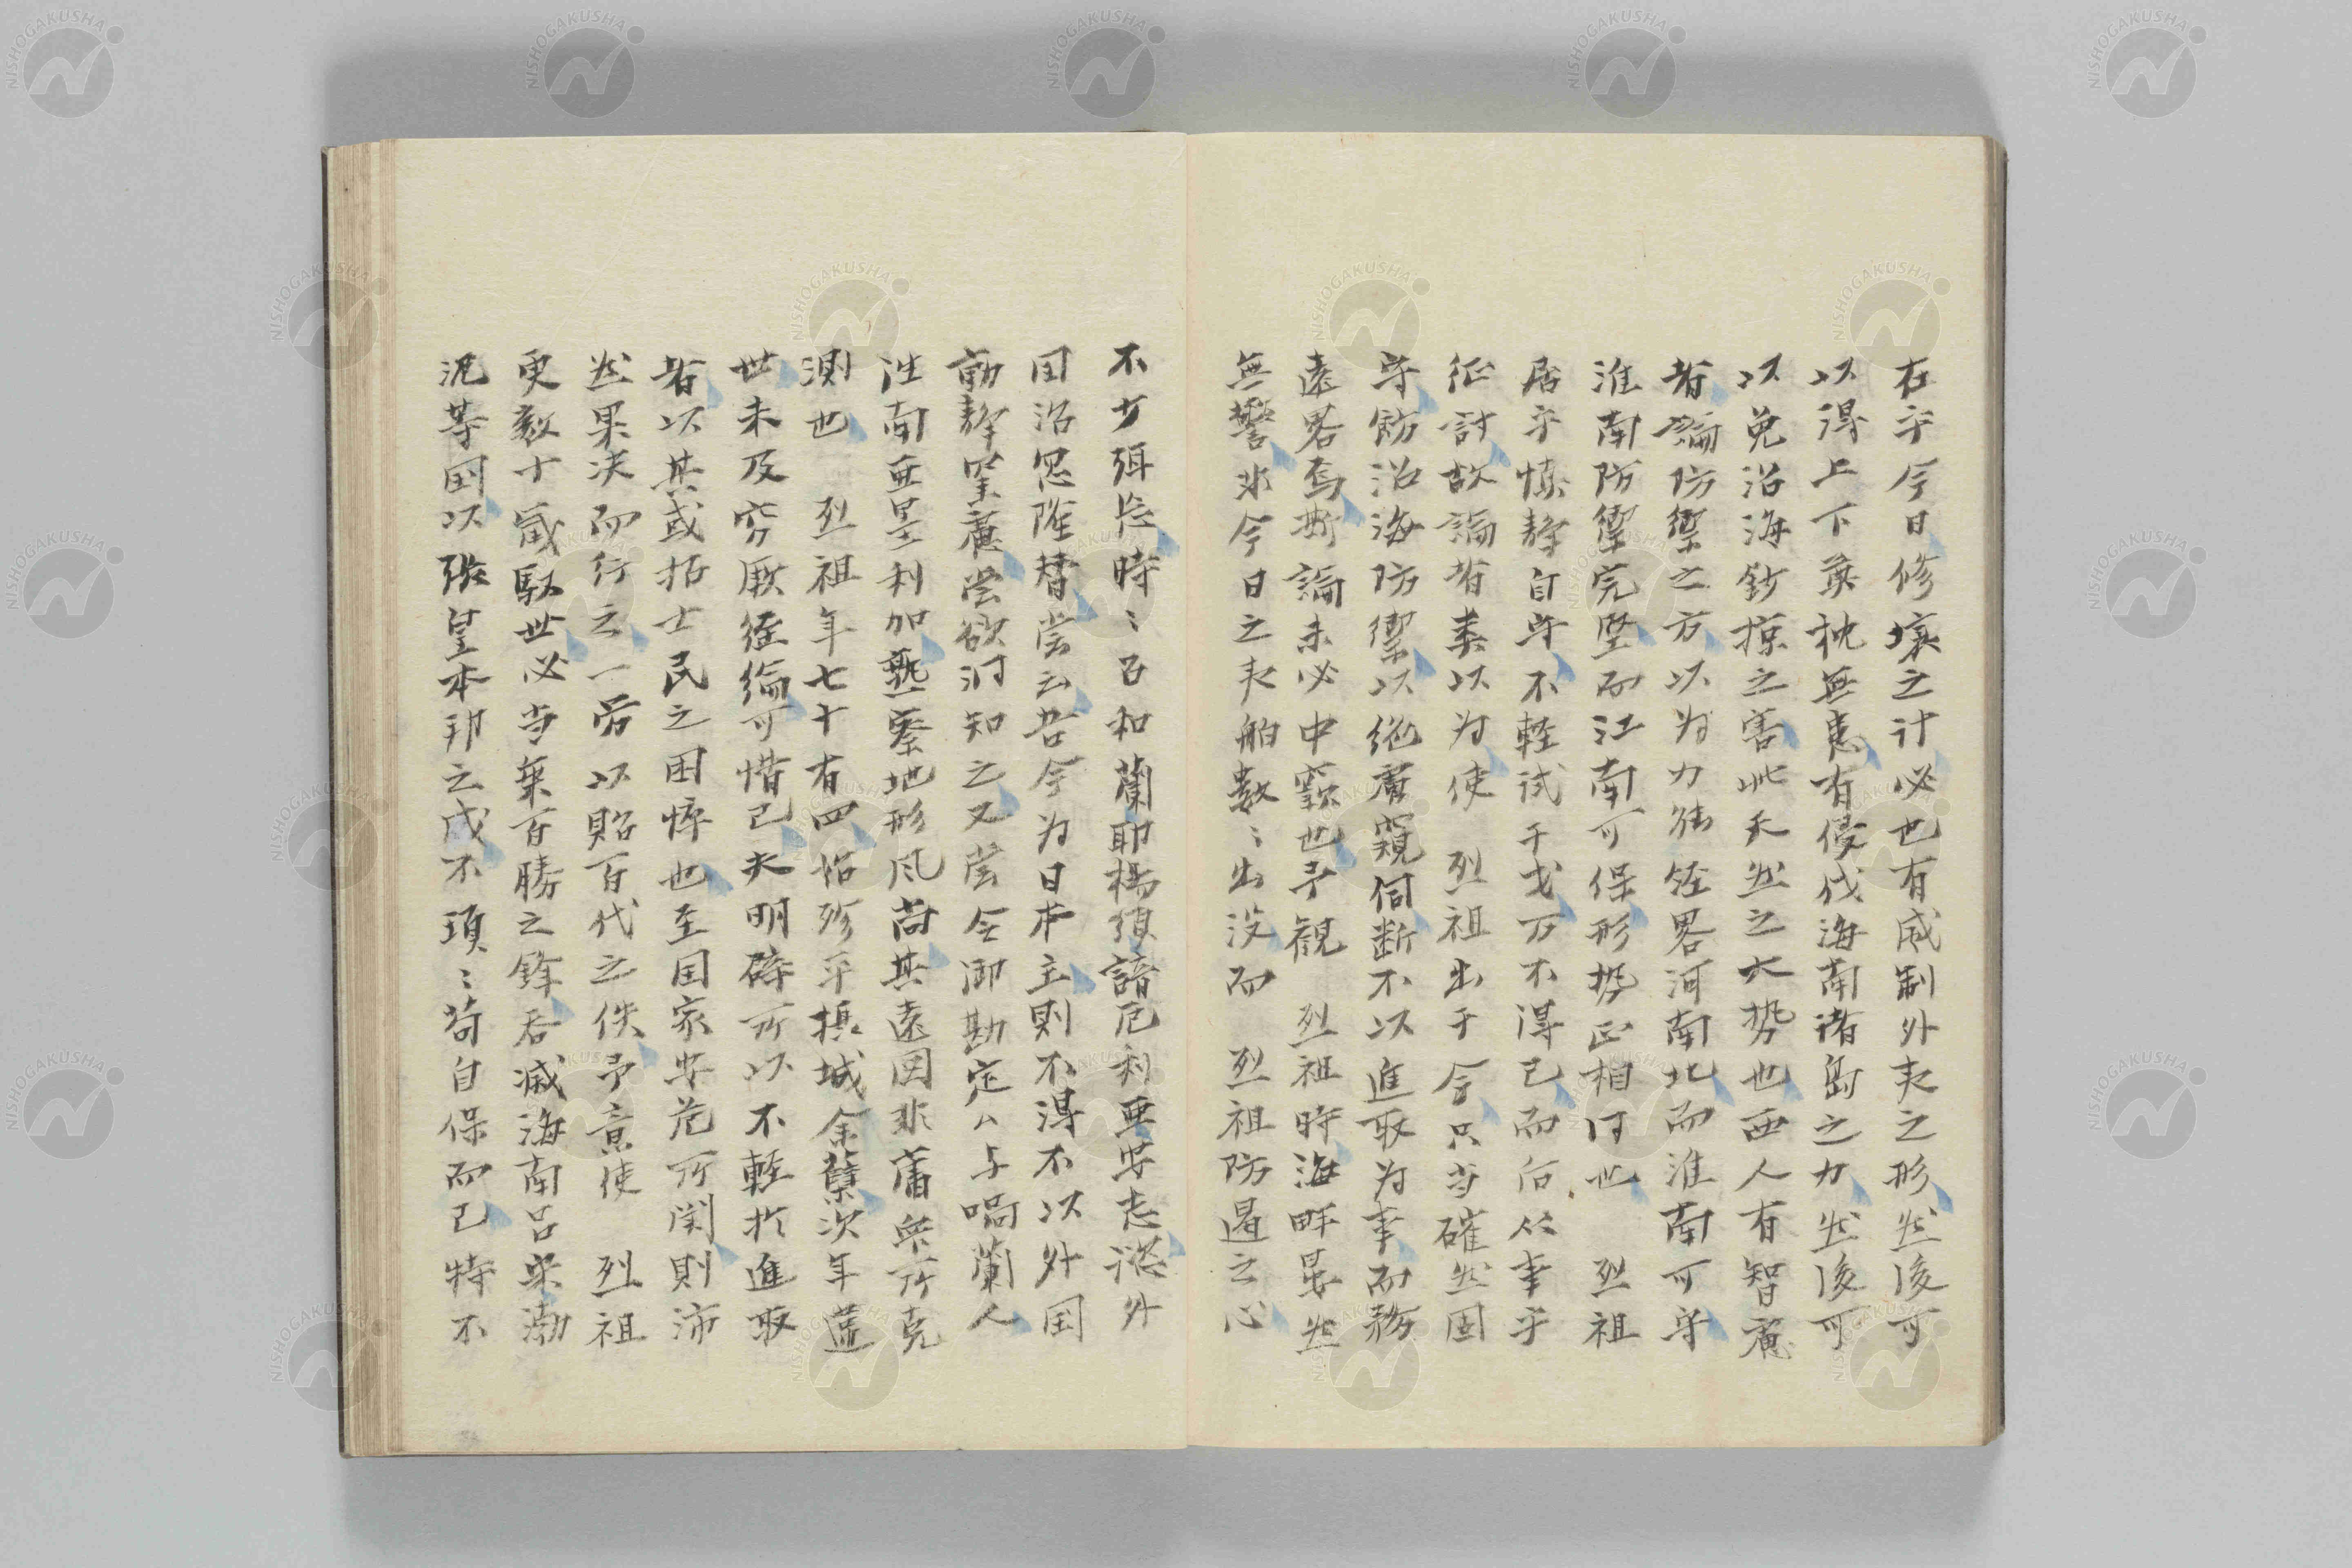 在乎今日修壌之計必也有威制外夷之形然後可
以得上下奠枕無恵有侵伐海南諸島之力然後可
以免沿海鈔掠之害此天然之大勢也西人有智慮
者論防禦之方以为力能経畧河南北而淮南可守
淮南防禦完堅而江南可保形勢正相同也 烈祖
居乎慎静自守不軽試干戈万不得已而后从事乎
征討故論者輩以为使 烈祖出于今只当確然固
守飭沿海防禦以絶虜窺伺断不以進取为事而務
遠畧焉斯論未必中窾也予観 烈祖時海畔晏然
無警非今日之夷舶数〻出没而 烈祖防遏之心
不少弭忘時〻召和蘭耶楊須諳厄利亜安志滋外
国治忽隆替嘗云吾今为日本主則不得不以外国
動静罣慮嘗欲洞知之又嘗令御勘定公与喎蘭人
往南亜墨利加熟察地形风尚其遠図非庸衆所克
測也 烈祖年七十有四始殄平摂城余蘖次年薨
世未及究厥経綸可惜已夫明辟所以不軽於進取
者以其或拓士民之困悴也至国家安危所関則沛
然果决而行之一労以貽百代之佚予意使 烈祖
更数十歳馭世必当乗百勝之鋒呑滅海南呂宋渤
泥等国以張皇本邦之威不項〻苟自保而已特不